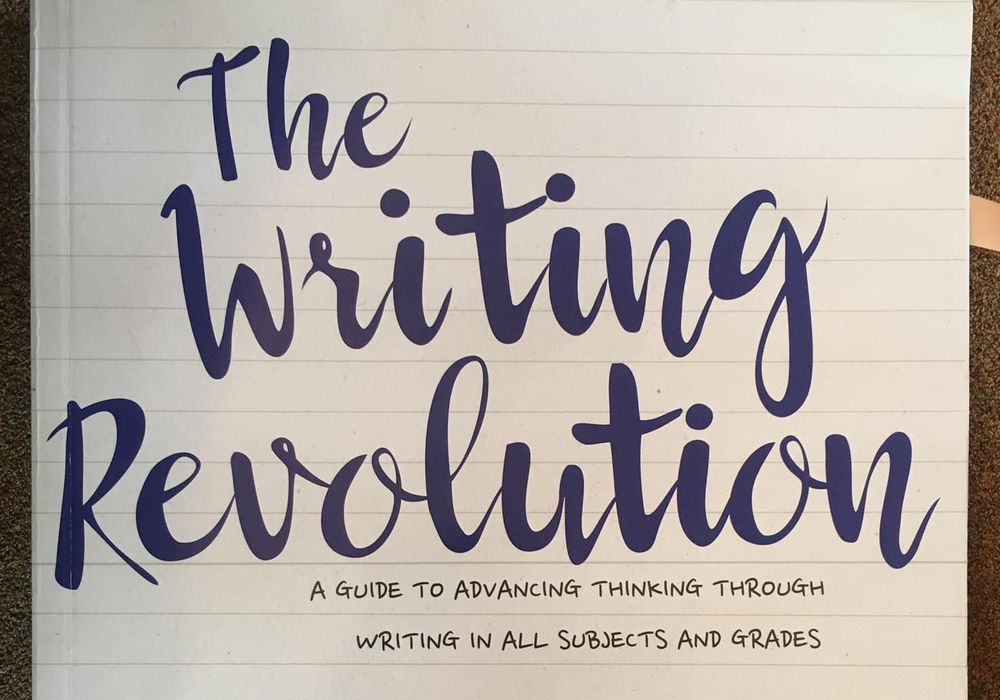 The
Writing
Revolution
A GUIDE TO ADVANCING THINKING THROUGH
WRITING IN ALL SUBJECTS AND GRADES